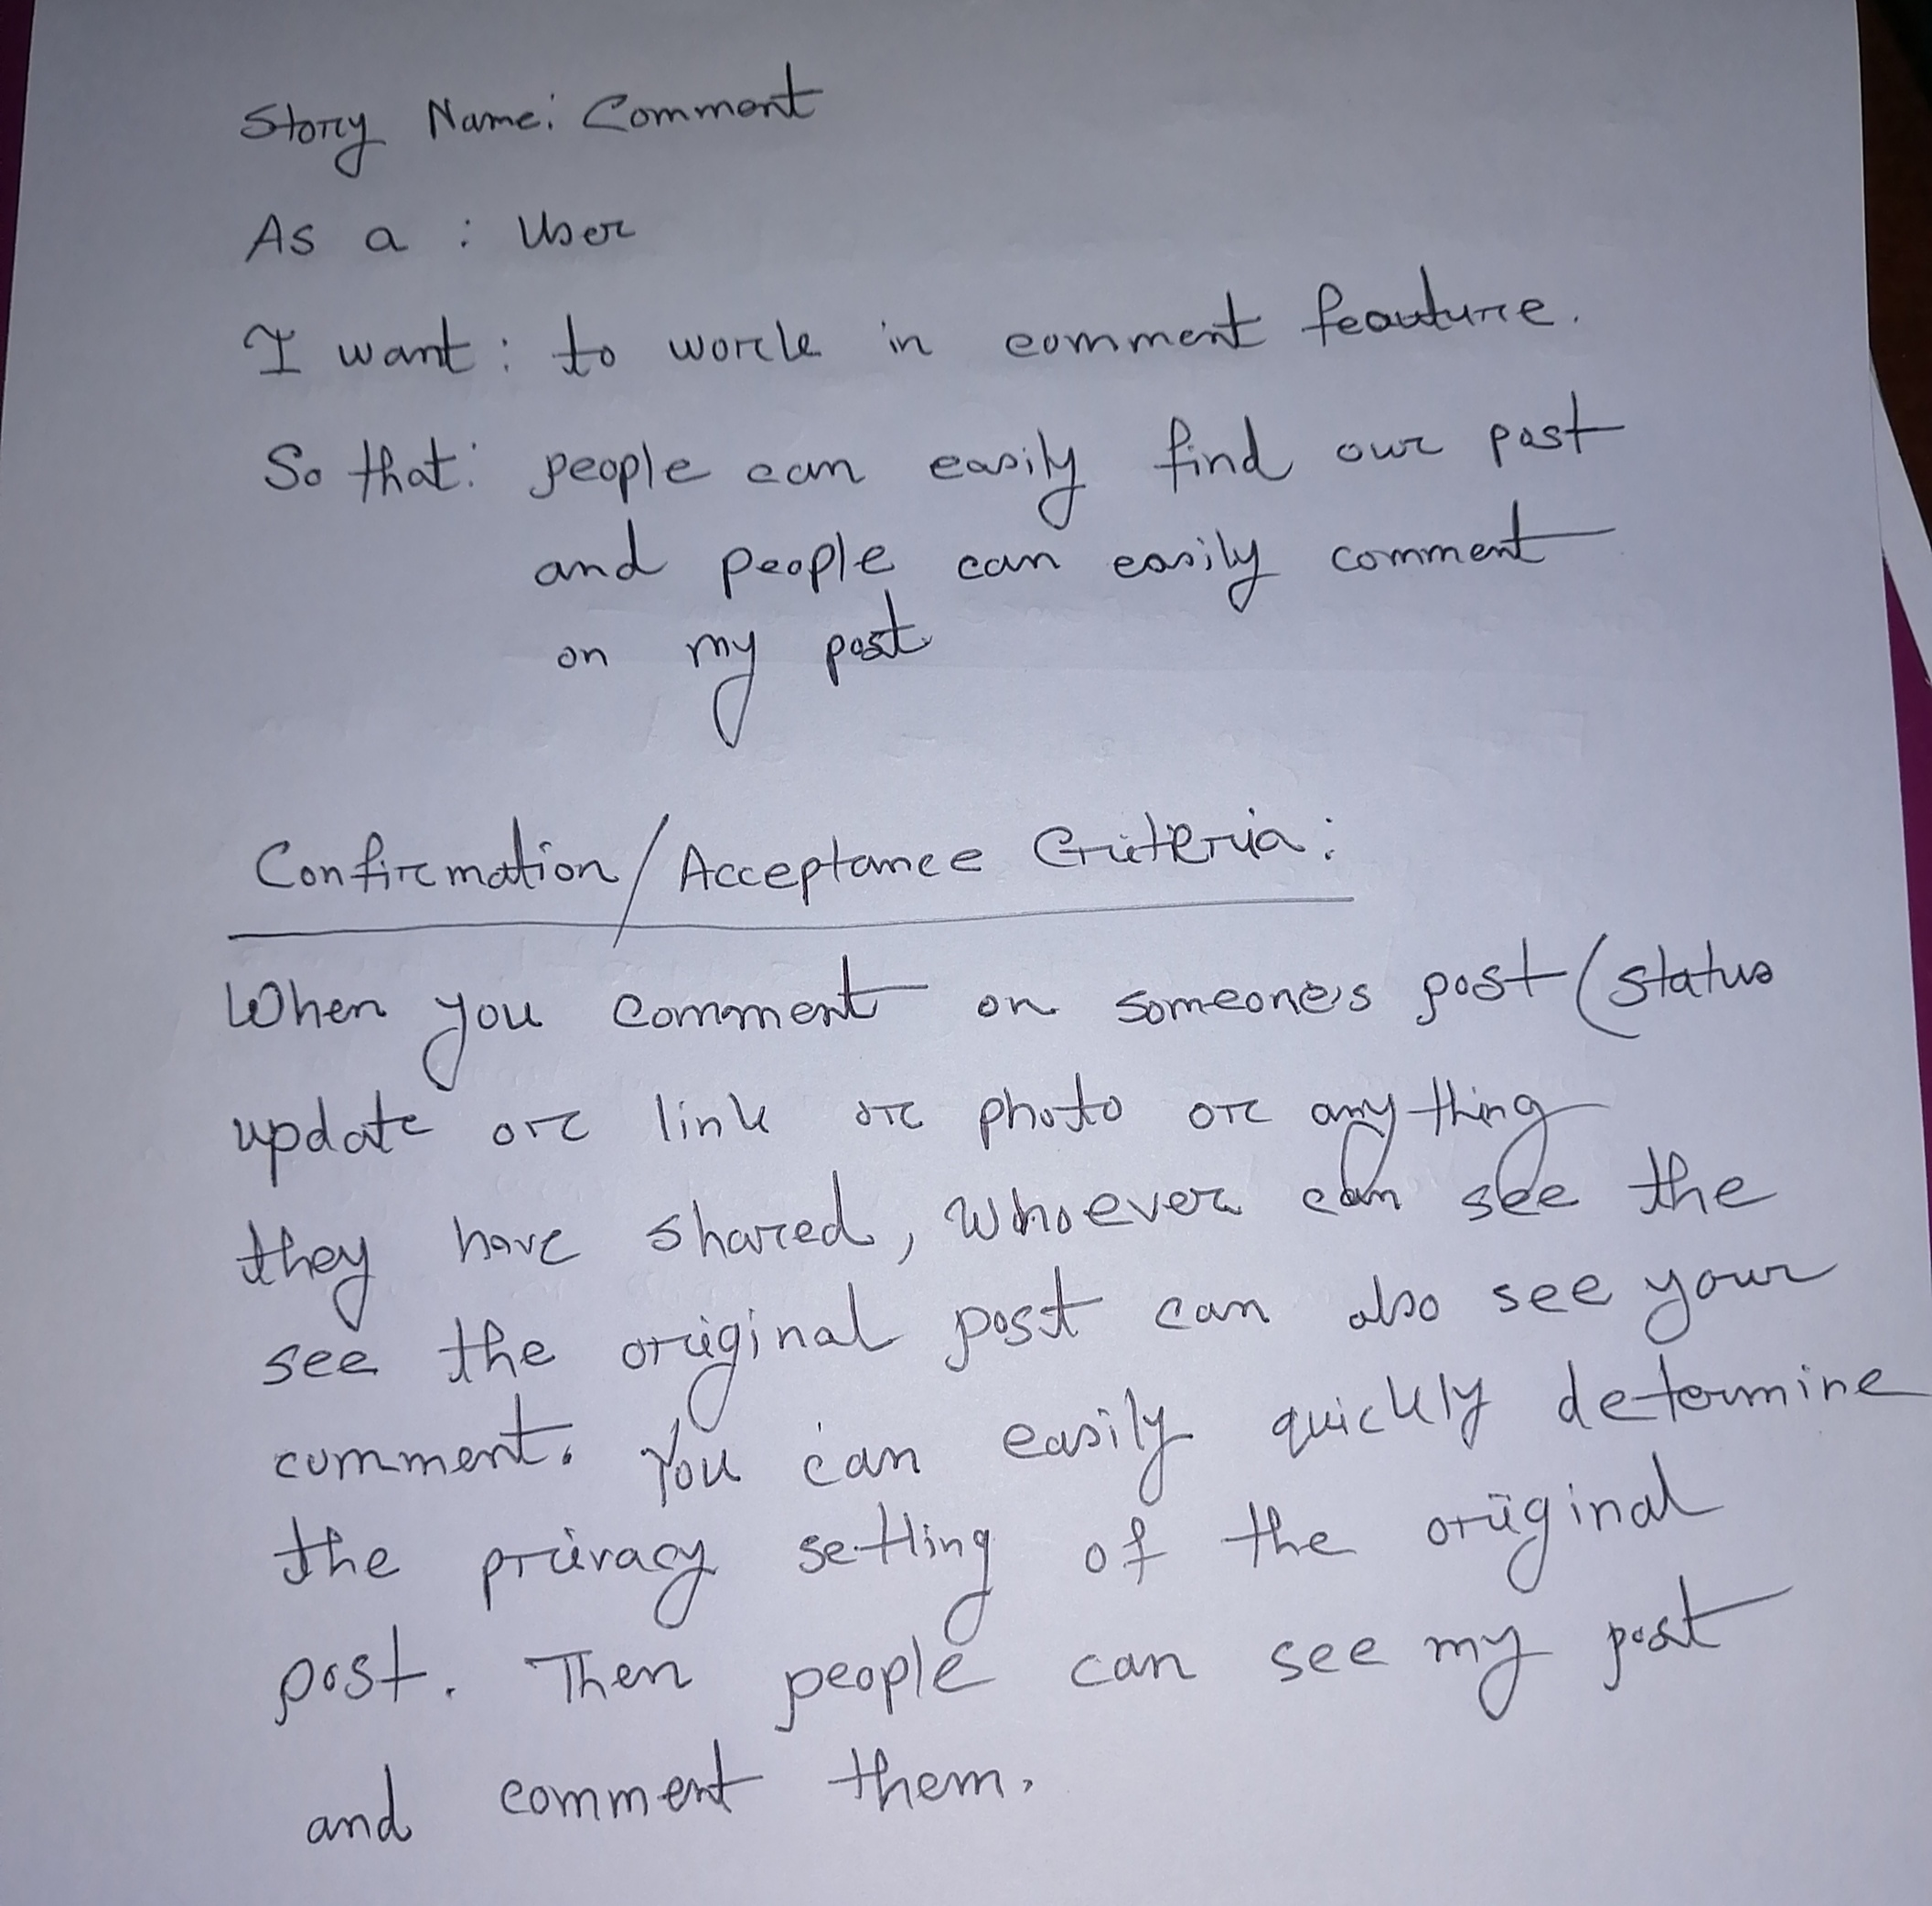 Story Name: Comment
As a : User
I want : to work in comment feauture.
So that: people can easily find our post
and people can easily comment
on my post.
Confirmation/Acceptance Criteria:
When you comment on someone's post (status
update or link or photo or any thing
they have shared, whoever can see the
see the original post can also see your
comment. You can easily quickly determine
the privacy setting of the original
post. Then people can see my post
and comment them.